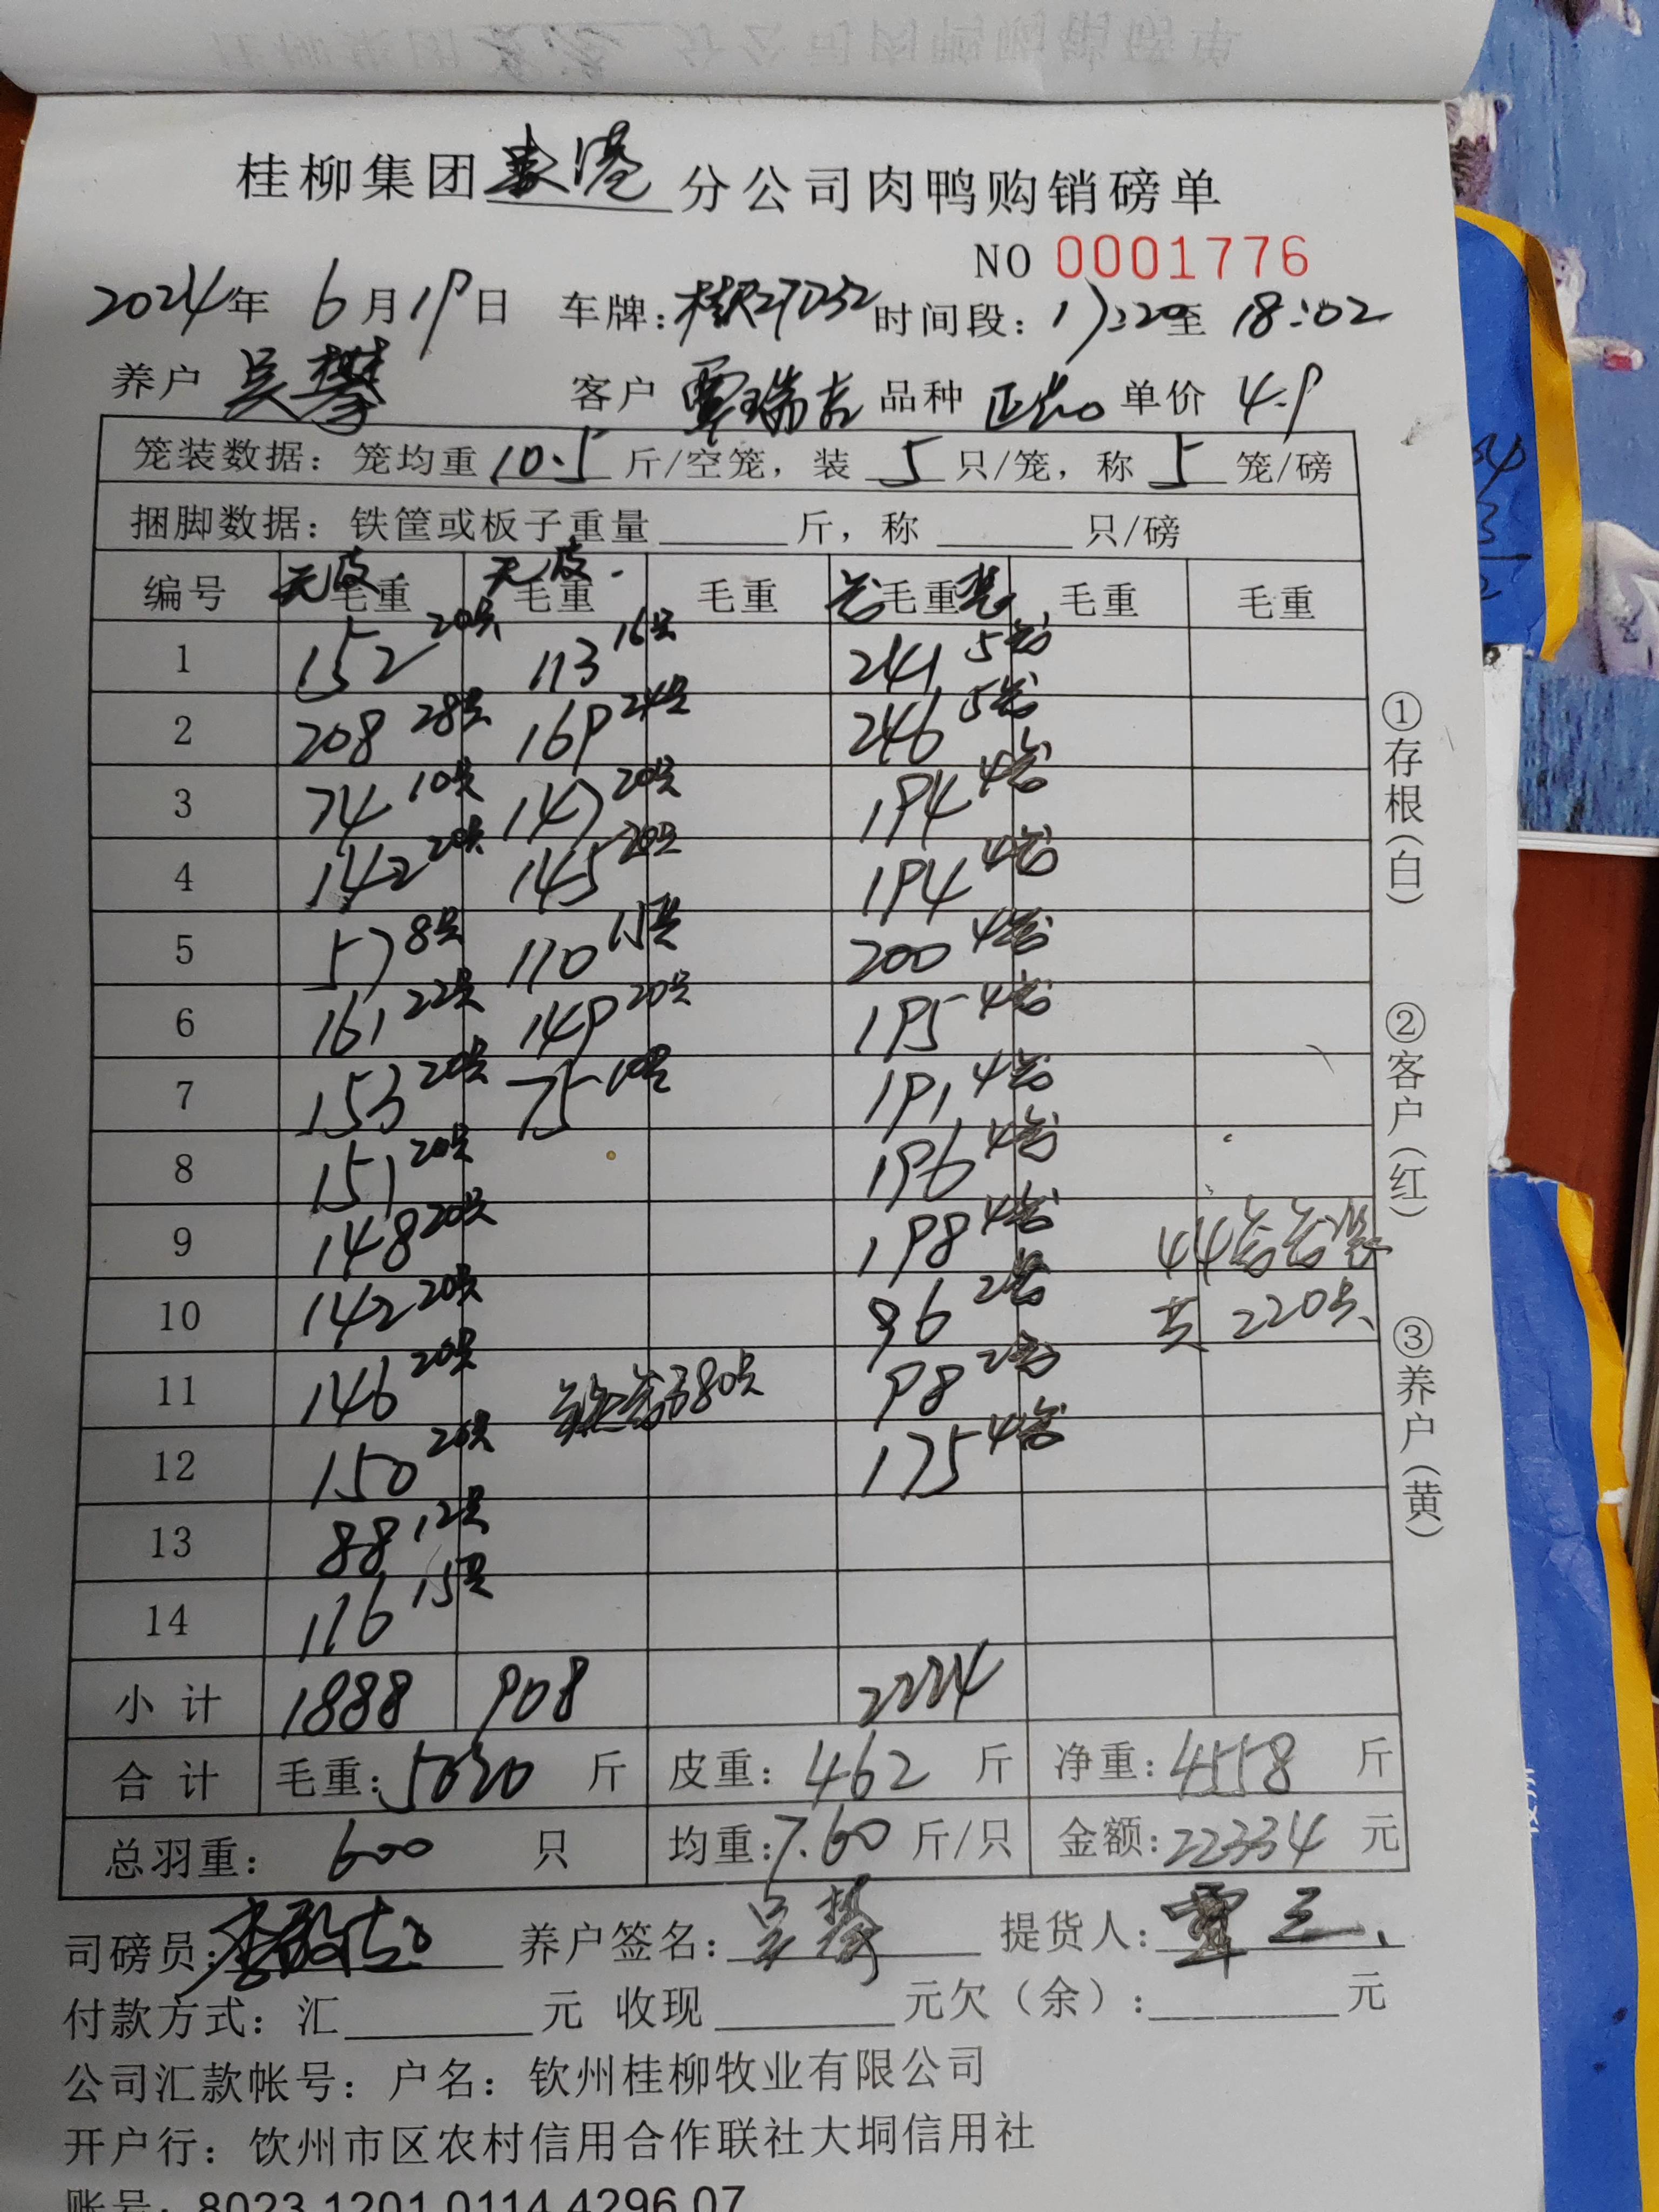 桂柳集团 分公司肉鸭购销磅单
NO 0001776
2024年 6月19日 车牌: 时间段: 17:20至 18:02
养户 吴攀 客户 覃瑞吉 品种 单价 4.9
笼装数据: 笼均重 10.5 斤/空笼, 装 5 只/笼, 称 5 笼/磅
捆脚数据: 铁筐或板子重量______斤, 称______只/磅
编号 无皮 毛重 无皮 毛重 毛重 毛重 毛重 毛重
1 152 20只 113 16只 241 5笼
2 208 28只 169 24只 246 5笼
3 74 10只 147 20只 194 4笼
4 142 20只 145 20只 194 4笼
5 57 8只 110 15只 200 4笼
6 161 22只 149 20只 195 4笼
7 153 20只 75 10只 191 4笼
8 151 20只 196 4笼
9 148 20只 198 4笼 44笼笼装
10 142 20只 96 2笼 共 220只
11 146 20只 380只 98 2笼
12 150 20只 175 4笼
13 88 12只
14 116 15只
小 计 1888 908 2224
合 计 毛重: 5020 斤 皮重: 462 斤 净重: 4558 斤
总羽重: 600 只 均重: 7.60 斤/只 金额: 22334 元
司磅员: 养户签名: 吴攀 提货人: 覃三
付款方式: 汇______元 收现______元欠(余):______元
公司汇款帐号: 户名: 钦州桂柳牧业有限公司
开户行: 钦州市区农村信用合作联社大垌信用社
账号: 8023 1201 0114 4296 07
①存根(白) ②客户(红) ③养户(黄)